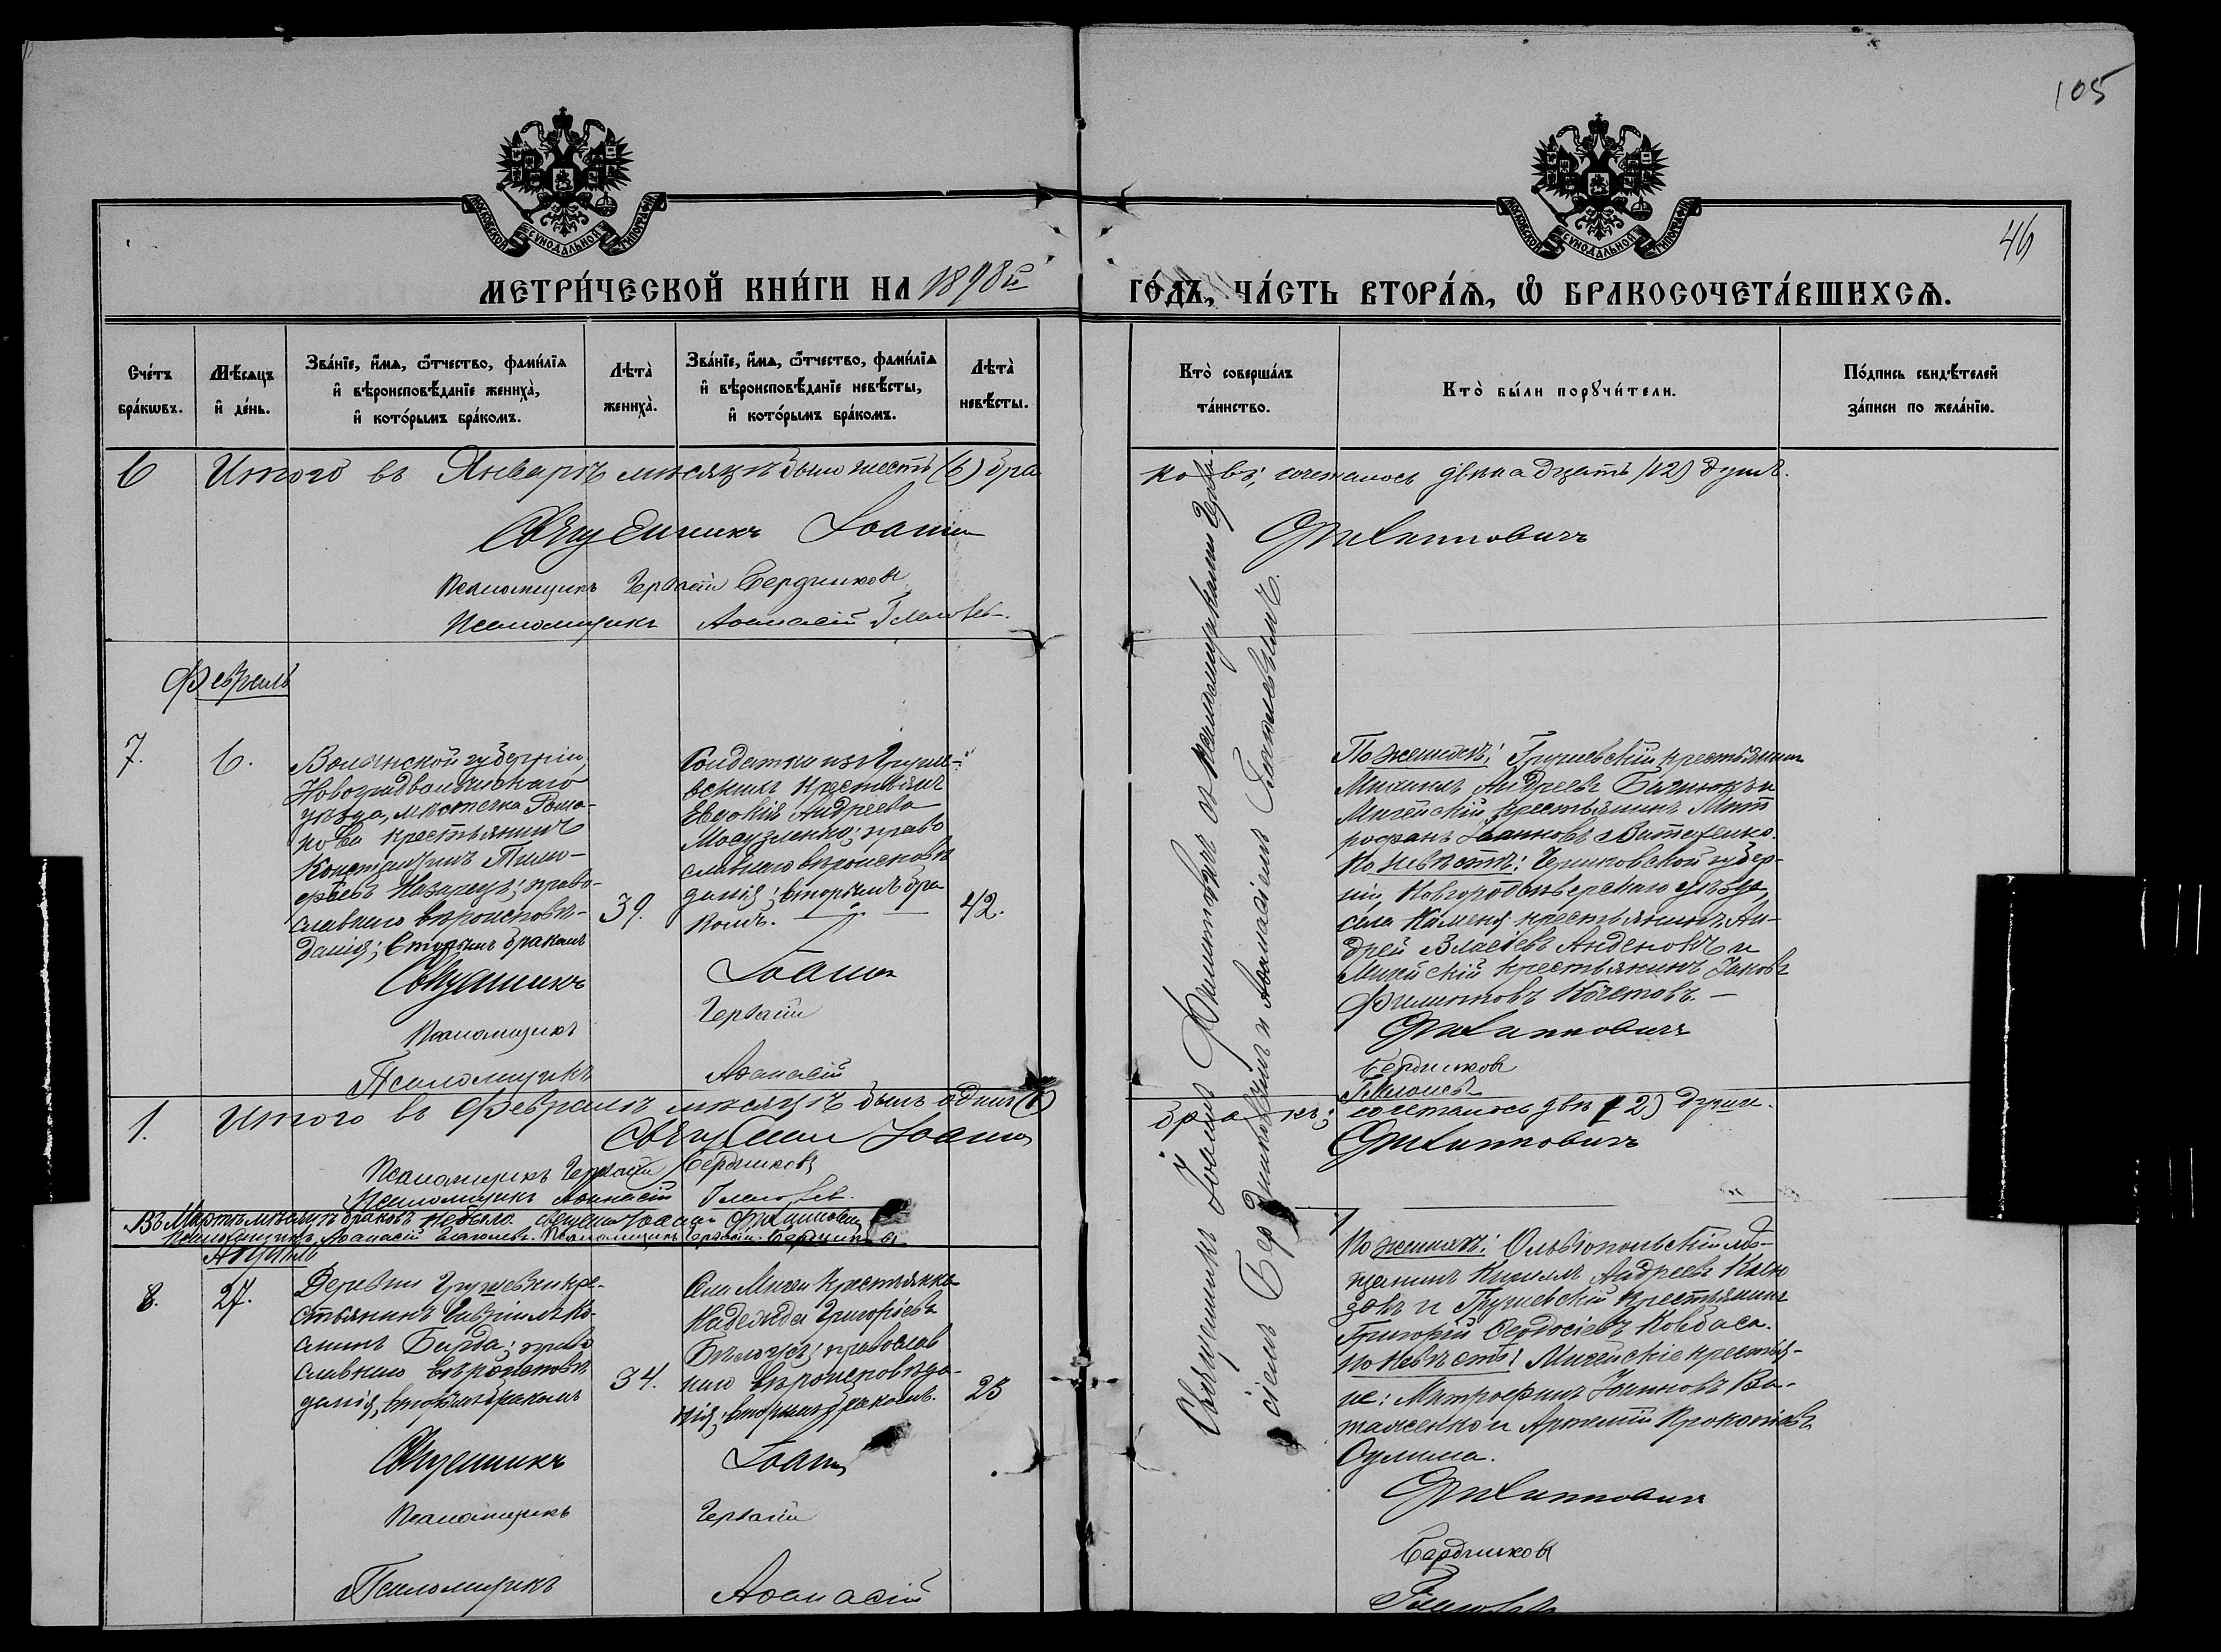 105
МОСКОВСКОЙ СѴНОДАЛЬНОЙ ТИПОГРАФІИ
МОСКОВСКОЙ СѴНОДАЛЬНОЙ ТИПОГРАФІИ
46
МЕТРИ́ЧЕСКОЙ КНИ́ГИ НА 1898й
ГО́ДЪ, ЧА́СТЬ ВТОРА́Ѧ, Ѽ БРАКОСОЧЕТА́ВШИХСѦ.
Сче́тъ
бра́кѡвъ.
Мѣ́сѧцъ
и҆ де́нь.
Зва́нїе, и҆́мѧ, ѻ҆́тчество, фами́лїѧ
и҆ вѣроисповѣ́данїе жениха̀,
и҆ кото́рымъ бра́комъ.
Лѣта̀
жениха̀.
Зва́нїе, и҆́мѧ, ѻ҆́тчество, фами́лїѧ
и҆ вѣроисповѣ́данїе невѣ́сты,
и҆ кото́рымъ бра́комъ.
Лѣта̀
невѣ́сты.
Кто̀ соверша́лъ
та́инство.
Кто̀ бы́ли порꙋчи́тели.
По́дпись свидѣ́телей
за́писи по жела́нїю.
6 Итого въ Январѣ мѣсяцѣ было шесть (6) бра
ковъ; сочеталось двѣнадцать (12) душъ.
Священникъ Іоаннъ
Филипповичъ
Псаломщикъ Гервасій Бердниковъ
Псаломщикъ Аѳанасій
Февраль
7.
6.
Волынской губерніи,
Новоградволынскаго
уѣзда, мѣстечка Рома-
нова крестьянинъ
Константинъ Тимо-
феевъ Назарецъ; право-
славнаго вѣроисповѣ-
данія; вторымъ бракомъ
39.
Солдатки изъ Груше-
вскихъ крестьянъ
Евдокія Андреева
право
славнаго вѣроисповѣ
данія; вторымъ бра
комъ.
42.
Священникъ Іоаннъ Филипповичъ съ псаломщиками Герва-
сіемъ Бердниковымъ и Аѳанасіемъ
По женихѣ: Грушевскій крестьянинъ
Михаилъ Андреевъ и
Мигейскій крестьянинъ Мит
рофанъ Іоанновъ
По невѣстѣ: Черниговской губер-
ніи, Новгородсѣверскаго уѣзда,
села Каменя крестьянинъ Ан-
дрей Власіевъ и
Мигейскій крестьянинъ Іаковъ
Филиповъ Кочетовъ.
Священникъ Іоаннъ
Филипповичъ
Псаломщикъ Гервасій
Бердниковъ
Псаломщикъ Аѳанасій
1. Итого въ Февралѣ мѣсяцѣ былъ одинъ (1)
бракъ; сочеталось двѣ (2) души.
Іоаннъ
Филипповичъ
Псаломщикъ Гервасій Бердниковъ
Псаломщикъ Аѳанасій
Въ Мартѣ мѣсяцѣ браковъ небыло. Іоаннъ Филипповичъ
Псаломщикъ Аѳанасій Псаломщикъ Гервасій Бердниковъ
Апрѣль
8.
27.
Деревни Грушевки кре-
стьянинъ Гавріилъ
право
славнаго вѣроисповѣ
данія, вторымъ бракомъ
34.
Села Мигеи крестьянка
Надежда Григоріева
православ
наго вѣроисповѣда-
нія; вторымъ бракомъ.
25
По женихѣ: Ольвіопольскій мѣ-
щанинъ Кириллъ Андреевъ
и Грушевскій крестьянинъ
Григорій Ѳеодосіевъ Ковбаса.
По невѣстѣ: Мигейскіе крестья-
не: Митрофанъ Іоанновъ Ва-
таженко и Артемій Прокопіевъ
Священникъ Іоаннъ
Филипповичъ
Псаломщикъ Гервасій
Бердниковъ
Псаломщикъ Аѳанасій